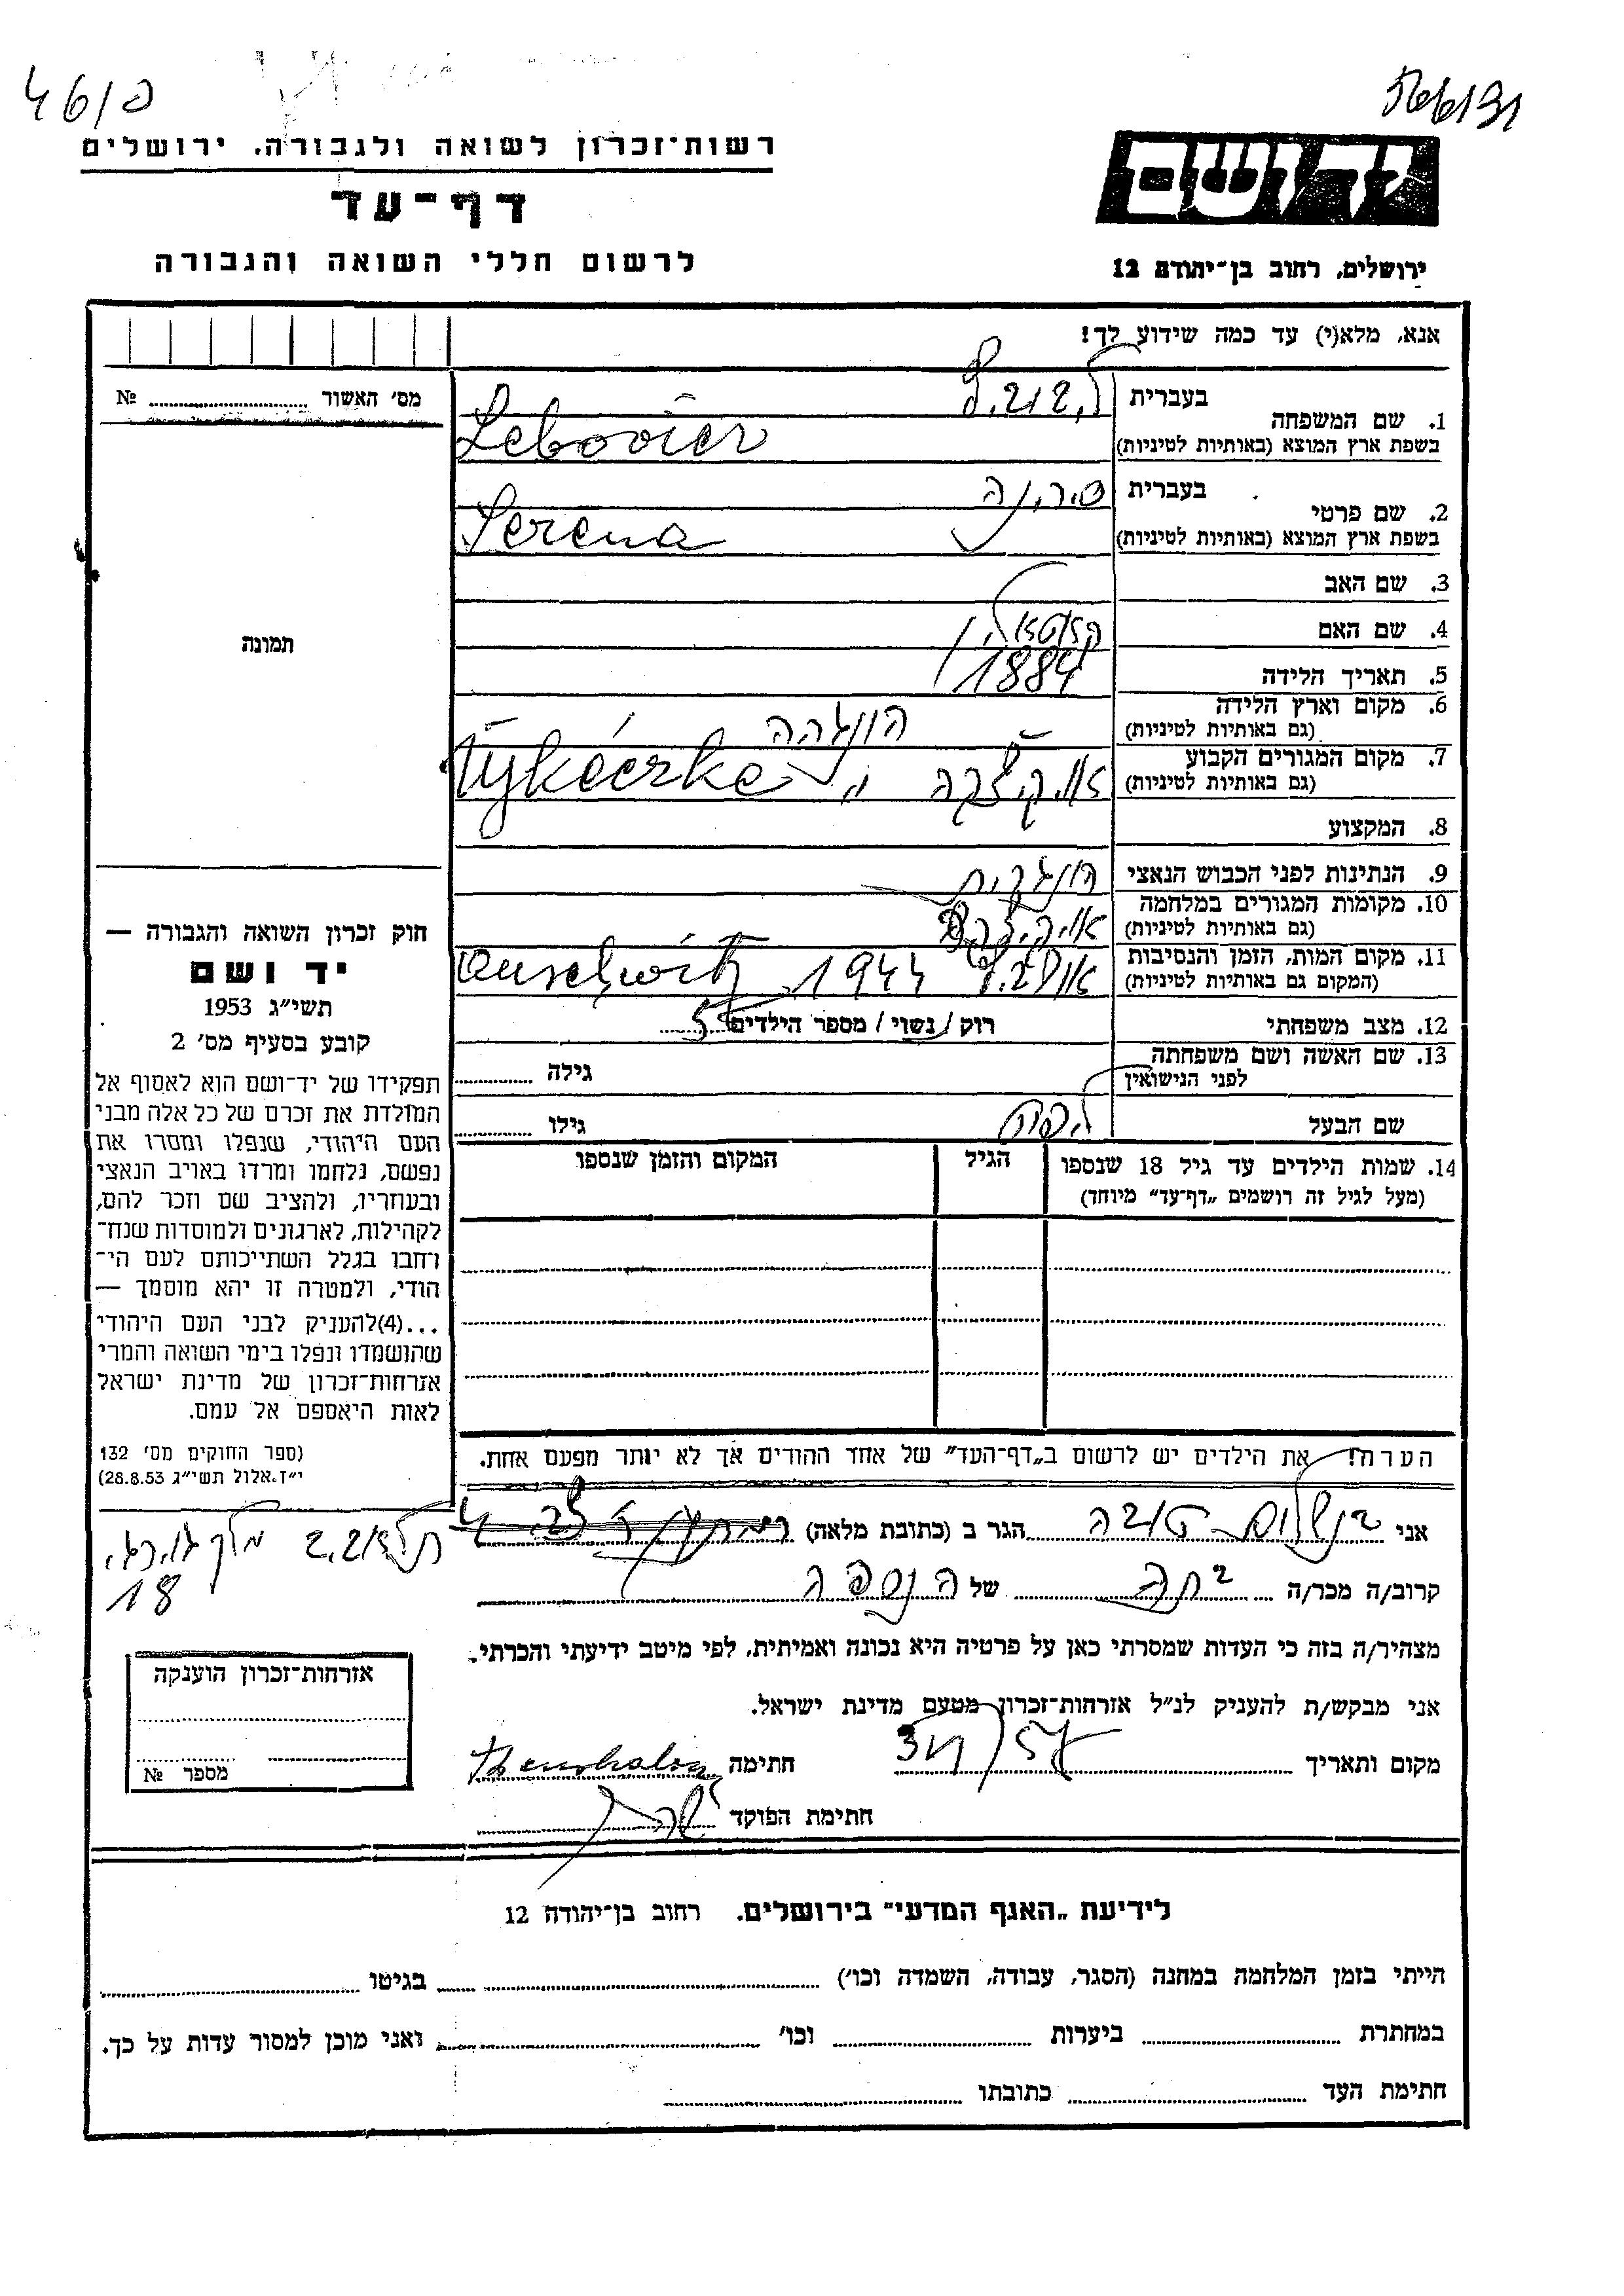 4610
רשות־זכרון לשואה ולגבורה, ירושלים
דף־עד
לרשום חללי השואה והגבורה
ירושלים, רחוב בן־יהודה 12
אנא, מלא(י) עד כמה שידוע לך!
מס׳ האשור № 
1. שם המשפחה בעברית
בשפת ארץ המוצא (באותיות לטיניות) Lebovici
2. שם פרטי בעברית סרנה
בשפת ארץ המוצא (באותיות לטיניות) Serena
3. שם האב
4. שם האם
5. תאריך הלידה 1884
6. מקום וארץ הלידה הונגריה
(גם באותיות לטיניות)
7. מקום המגורים הקבוע
(גם באותיות לטיניות)
8. המקצוע
9. הנתינות לפני הכבוש הנאצי הונגרית
10. מקומות המגורים במלחמה
(גם באותיות לטיניות)
11. מקום המות, הזמן והנסיבות 1944 Auschwitz
(המקום גם באותיות לטיניות)
12. מצב משפחתי רוק / נשוי / מספר הילדים 5
13. שם האשה ושם משפחתה
לפני הנישואין גילה
שם הבעל גילו
14. שמות הילדים עד גיל 18 שנספו הגיל המקום והזמן שנספו
(מעל לגיל זה רושמים „דף־עד” מיוחד)
תמונה
חוק זכרון השואה והגבורה —
יד ושם
תשי״ג 1953
קובע בסעיף מס׳ 2
תפקידו של יד־ושם הוא לאסוף אל
המולדת את זכרם של כל אלה מבני
העם היהודי, שנפלו ומסרו את
נפשם, נלחמו ומרדו באויב הנאצי
ובעוזריו, ולהציב שם וזכר להם,
לקהילות, לארגונים ולמוסדות שנח־
רחבו בגלל השתייכותם לעם הי־
הודי, ולמטרה זו יהא מוסמך —
...(4) להעניק לבני העם היהודי
שהושמדו ונפלו בימי השואה והמרי
אזרחות־זכרון של מדינת ישראל
לאות היאספם אל עמם.
(ספר החוקים מס׳ 132
י״ז אלול תשי״ג 28.8.53)
הערה: את הילדים יש לרשום ב„דף־העד” של אחד ההורים אך לא יותר מפעם אחת.
אני הגר ב (כתובת מלאה)
תל אביב
18
קרוב/ה מכר/ה בתה של הנספה
מצהיר/ה בזה כי העדות שמסרתי כאן על פרטיה היא נכונה ואמיתית, לפי מיטב ידיעתי והכרתי.
אני מבקש/ת להעניק לנ״ל אזרחות־זכרון מטעם מדינת ישראל.
מקום ותאריך חתימה
חתימת הפוקד
אזרחות־זכרון הוענקה
מספר №
לידיעת „האגף המדעי” בירושלים, רחוב בן־יהודה 12
הייתי בזמן המלחמה במחנה (הסגר, עבודה, השמדה וכו׳) בגיטו
במחתרת ביערות וכו׳ ואני מוכן למסור עדות על כך.
חתימת העד כתובתו